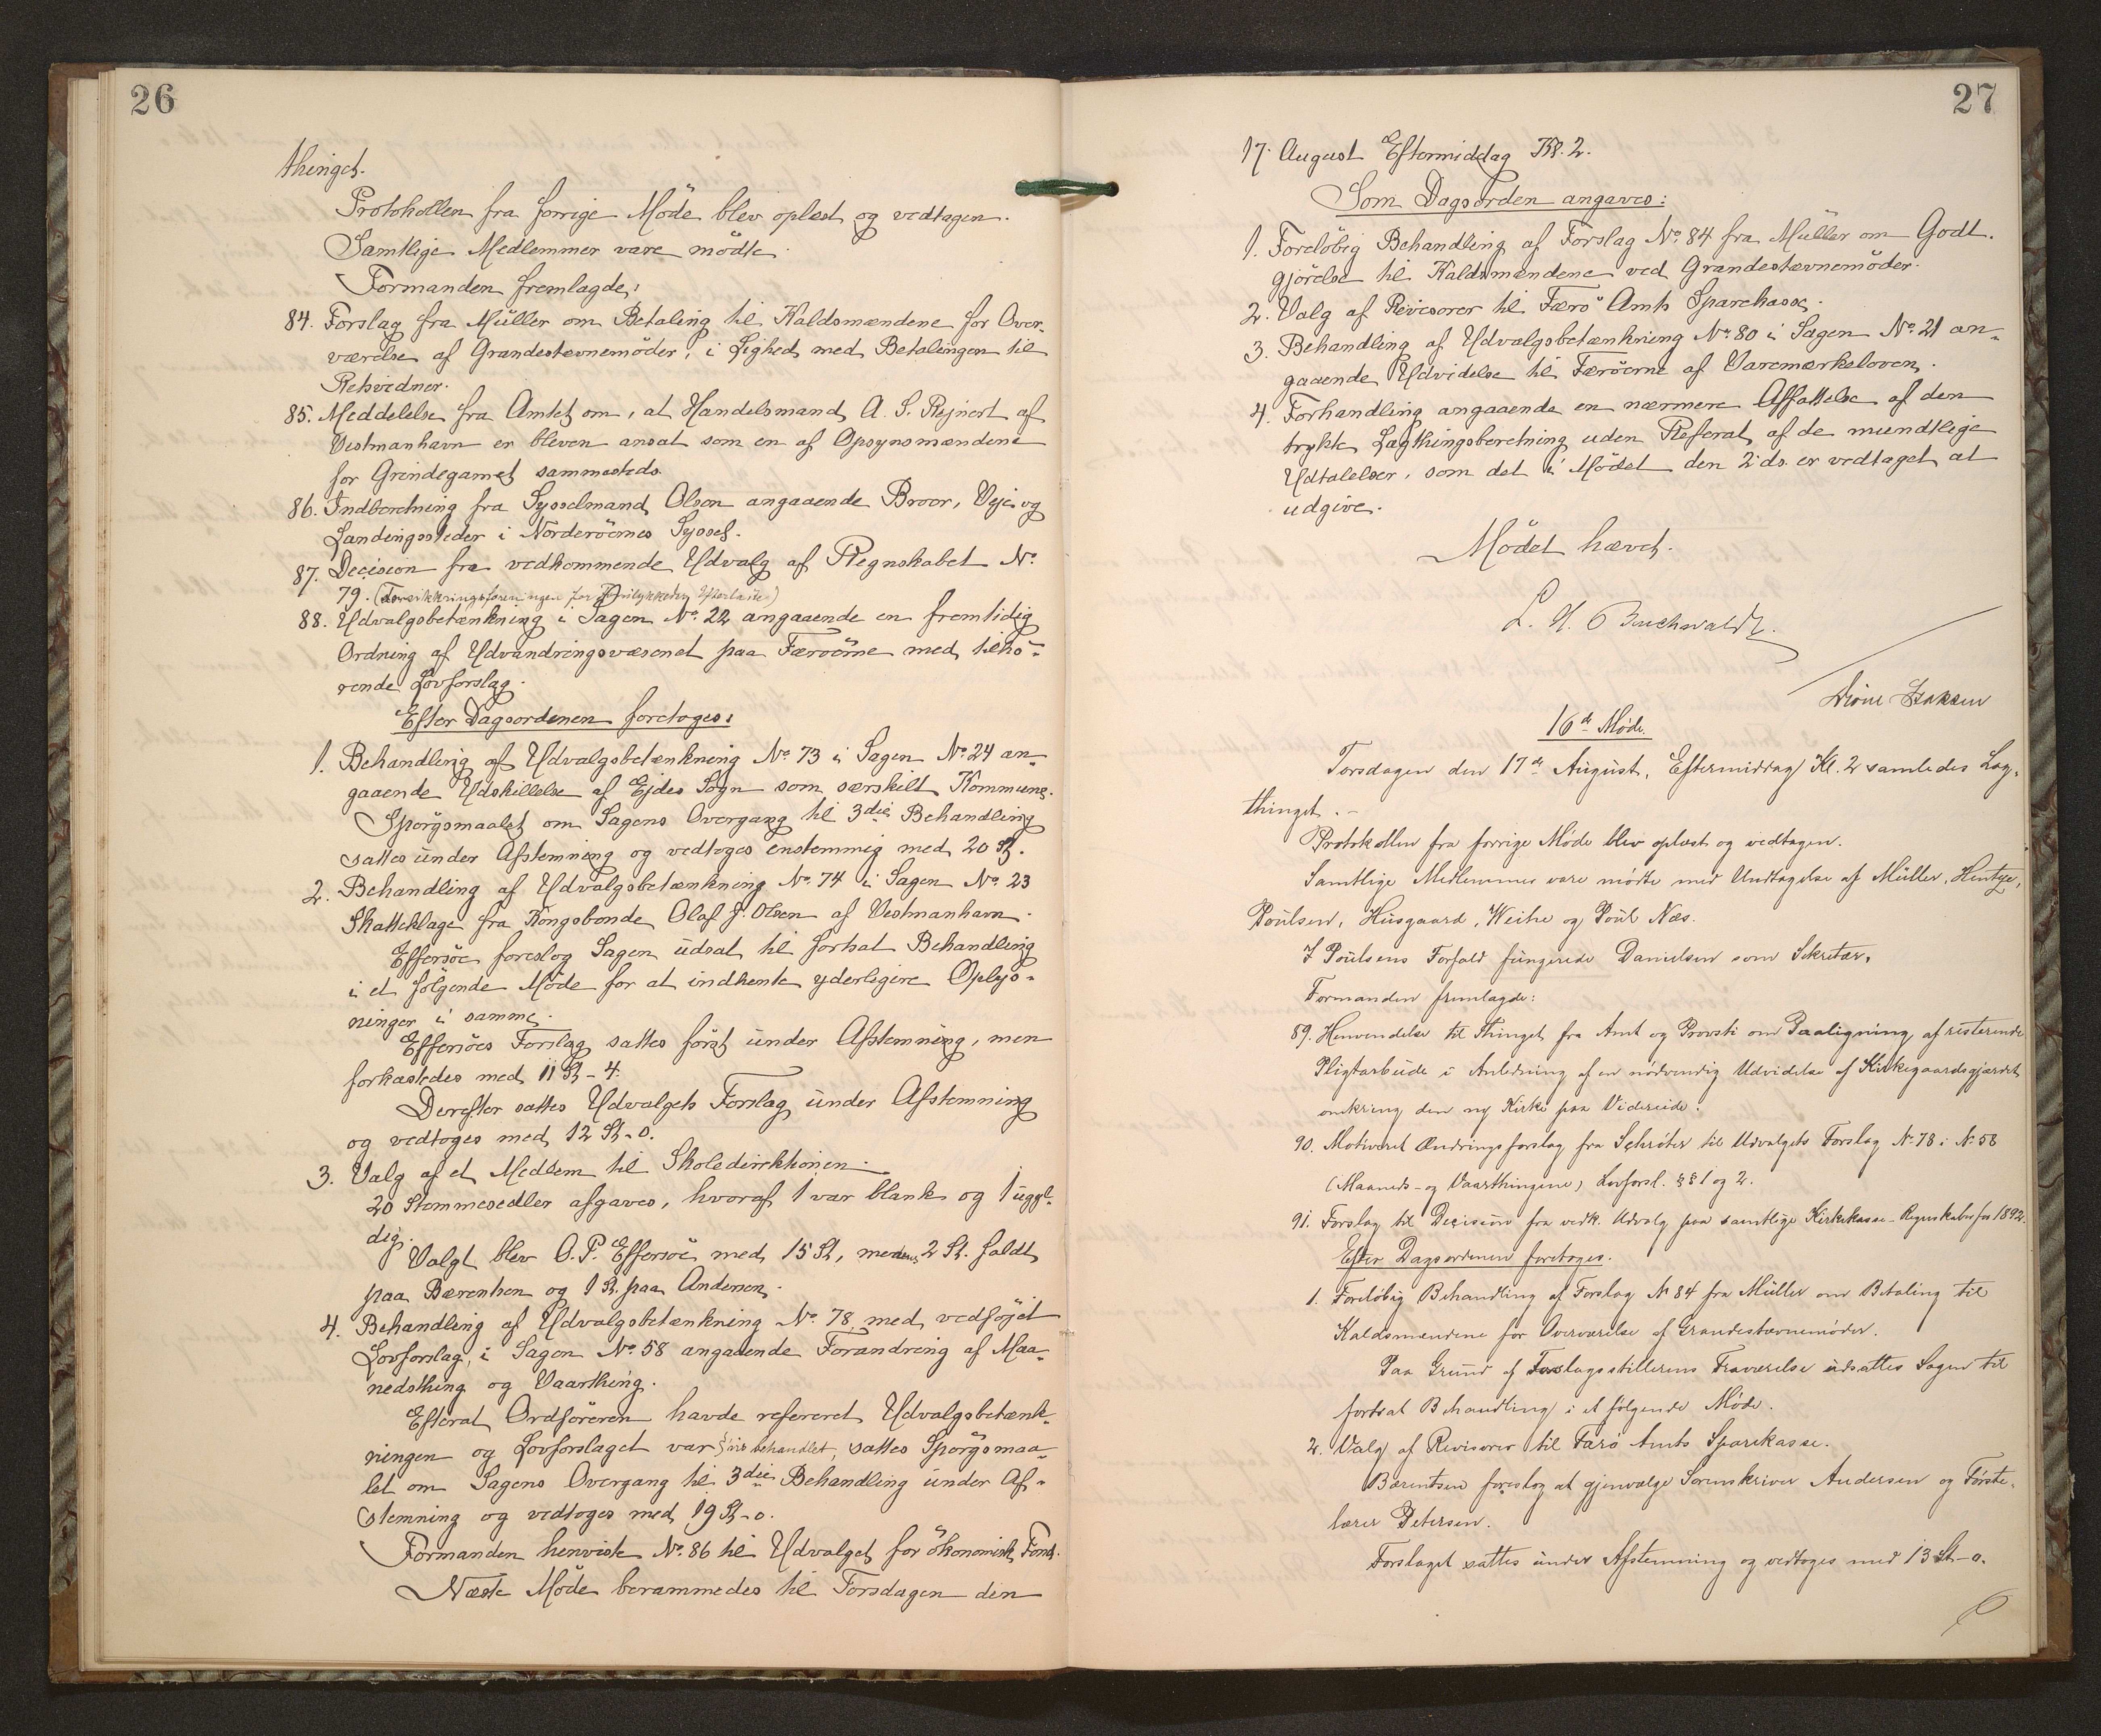 26
thinget.
Protokollen fra forrige Möde blev oplæst og vedtagen.
Samtlige Medlemmer vare mödte.
Formanden fremlagde:
84. Forslag fra Müller om Betaling til Kaldsmændene for Over-
værelse af Grandestævnemöder, i Lighed med Betalingen til
Retsvidner.
85. Meddelelse fra Amtet om, at Handelsmand A. S. Rejnert af
Vestmanhavn er bleven ansat som en af Opsynsmændene
for Grindegarnet sammesteds.
86. Indberetning fra Sysselmand Olsen angaaende Broer, Veje og
Landingssteder i Norderöernes Syssel.
87. Decision fra vedkommende Udvalg af Regnskabet No
79. (Forsikkringsforeningen for Forulykkedes Efterladte)
88. Udvalgsbetænkning i Sagen No. 22 angaaende en fremtidig
Ordning af Udvandringsvæsenet paa Færöerne med tilhö-
rende Lovforslag.
Efter Dagsordenen foretoges:
1. Behandling af Udvalgsbetænkning No 73 i Sagen No 24 an-
gaaende Udskillelse af Ejdes Sogn som særskilt Kommune.
Spörgsmaalet om Sagens Overgang til 3die Behandling
sattes under Afstemning og vedtoges enstemmig med 20 St.
2. Behandling af Udvalgsbetænkning No. 74 i Sagen No. 23
Skatteklage fra Kongsbonde Olaf J. Olsen af Vestmanhavn.
Effersöe foreslog Sagen udsat til fortsat Behandling
i et fölgende Möde for at indhente yderligere Oplys-
ninger i samme.
Effersöes Forslag sattes först under Afstemning, men
forkastedes med 11 St - 4.
Derefter sattes Udvalgets Forslag under Afstemning
og vedtoges med 12 St - 0.
3. Valg af et Medlem til Skoledirektionen.
20 Stemmesedler afgaves, hvoraf 1 var blank og 1 ugyl-
dig.
Valgt blev O. P. Effersöe med 15 St, medens 2 St. faldt
paa Bærentsen og 1 St. paa Andersen.
4. Behandling af Udvalgsbetænkning No. 78 med vedföjet
Lovforslag, i Sagen No. 58 angaaende Forandring af Maa-
nedsthing og Vaarthing.
Efterat Ordföreren havde refereret Udvalgsbetænk-
ningen og Lovforslaget var §vis behandlet, sattes Spörgsmaa-
let om Sagens Overgang til 3die Behandling under Af-
stemning og vedtoges med 19 St - 0.
Formanden henviste No. 86 til Udvalget for ökonomisk Fond.
Næste Möde berammedes til Torsdagen den
27
17. August Eftermiddag Kl. 2.
Som Dagsorden angaves:
1. Forelöbig Behandling af Forslag No. 84 fra Müller om Godt-
gjörelse til Kaldsmændene ved Grandestævnemöder.
2. Valg af Revisorer til Færö Amts Sparekasse.
3. Behandling af Udvalgsbetænkning No. 80 i Sagen No. 21 an-
gaaende Udvidelse til Færöerne af Varemærkeloven.
4. Forhandling angaaende en nærmere Affattelse af den
trykte Lagthingsberetning uden Referat af de mundtlige
Udtalelser, som det i Mödet den 2 ds. er vedtaget at
udgive.
Mödet hævet.
L. H. Buchwaldt.
16de Møde.
Torsdagen den 17de August, Eftermiddag Kl. 2 samledes Lag-
thinget. -
Protokollen fra forrige Møde blev oplæst og vedtagen.
Samtlige Medlemmer vare mødte med Undtagelse af Müller, Hentze,
Poulsen, Husgaard, Weihe og Poul Næs.
I Poulsens Forfald fungerede Danielsen som Sekretær.
Formanden fremlagde:
89. Henvendelse til Thinget fra Amt og Provsti om Paaligning af resterende
Pligtarbeide i Anledning af en nødvendig Udvidelse af Kirkegaardsgjærdet
omkring den ny Kirke paa Videreide.
90. Motiveret Ændringsforslag fra Schrøter til Udvalgets Forslag No. 78 i No. 58
(Maaneds- og Vaarthingene) Lovforsl. §§ 1 og 2.
91. Forslag til Decision fra vedk. Udvalg paa samtlige Kirkekasse-Regnskaber for 1892.
Efter Dagsordenen foretoges.
1. Foreløbig Behandling af Forslag No 84 fra Müller om Betaling til
Kaldsmændene for Overværelse af Grandestævnemøder.
Paa Grund af Forslagsstillerens Fraværelse udsattes Sagen til
fortsat Behandling i et følgende Møde.
2. Valg af Revisorer til Færø Amts Sparekasse.
Bærentsen foreslog at gjenvælge Sorenskriver Andersen og Første-
lærer Petersen.
Forslaget sattes under Afstemning og vedtoges med 13 St - 0.